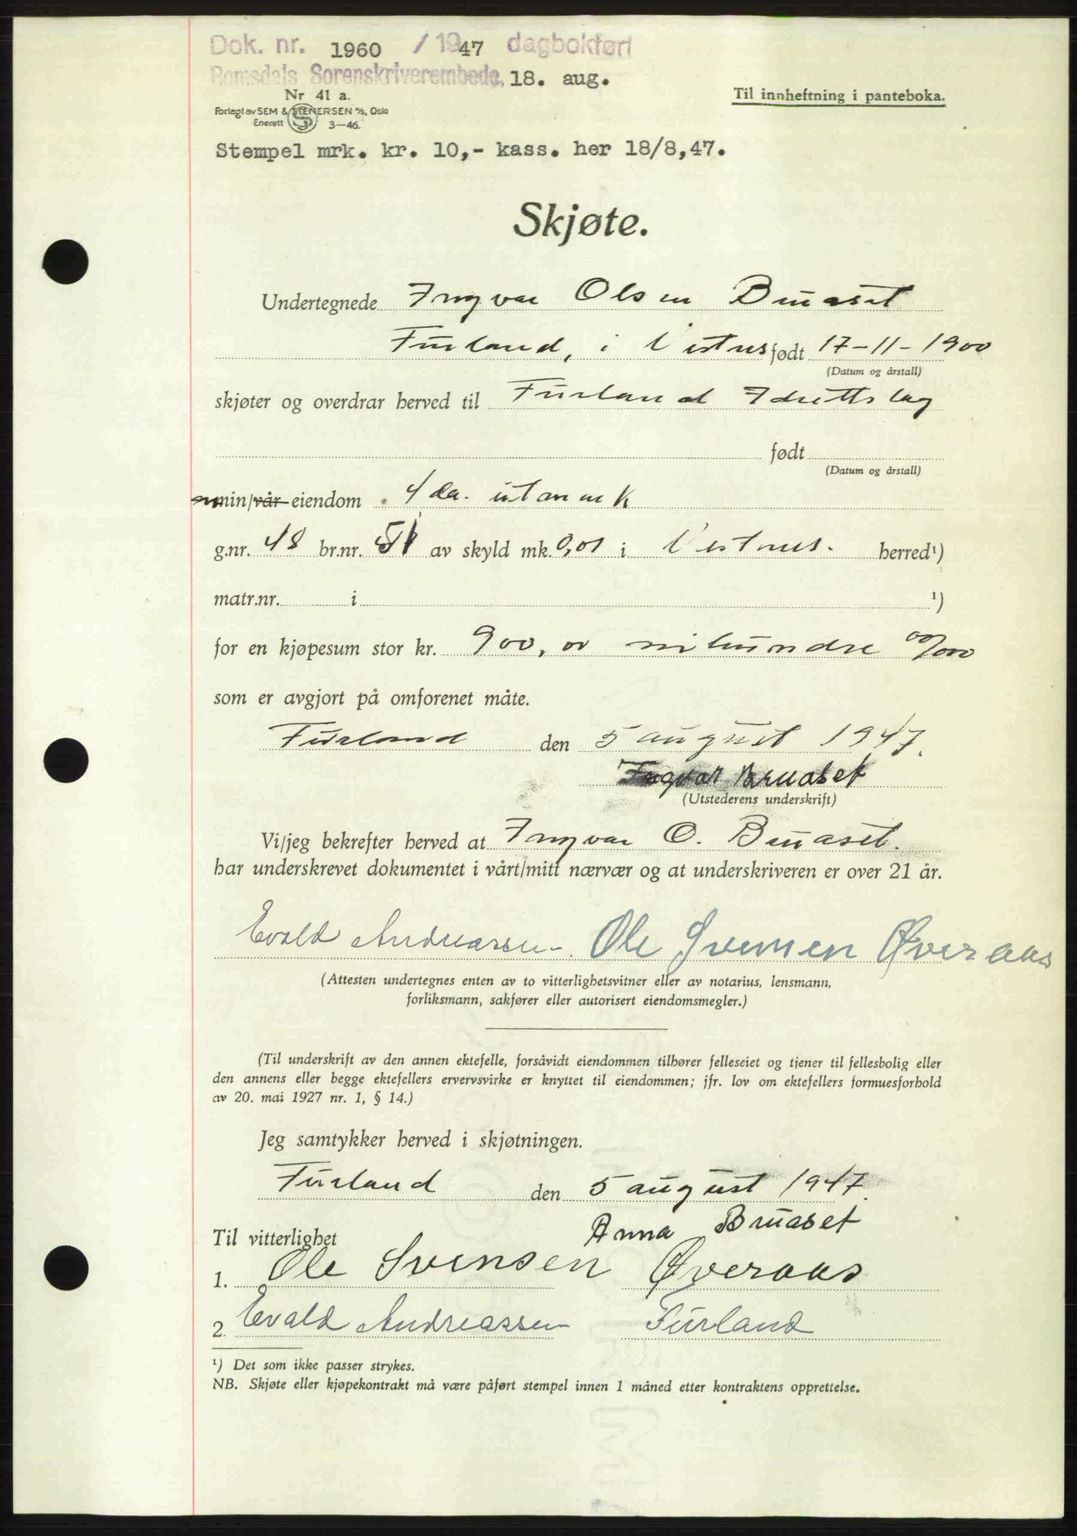 Dok. nr. 1960 / 1947 dagbokført
Romsdals Sorenskriverembede, 18. aug.
Nr 41 a.
Forlagt av SEM & STENERSEN A/S, Oslo
Enerett 3—46.
Til innheftning i panteboka.
Stempel mrk. kr. 10,- kass. her 18/8,47.
Skjøte.
Undertegnede Ingvar Olsen Bruaset
Fursland, i Vestnes født 17-11-1900
(Datum og årstall)
skjøter og overdrar herved til Fursland Idrettslag
født
(Datum og årstall)
min/vår eiendom 4 da. utmark
g.nr. 48 br.nr. 51 av skyld mk. 0,01 i Vestnes. herred¹)
matr.nr. i ¹)
for en kjøpesum stor kr. 900, nihundre 00/000
som er avgjort på omforenet måte.
Fursland den 5 august 1947.
Ingvar Bruaset
(Utstederens underskrift)
Vi/jeg bekrefter herved at Ingvar O. Bruaset.
har underskrevet dokumentet i vårt/mitt nærvær og at underskriveren er over 21 år.
Evald Andreassen. Ole Svensen Øveraas
(Attesten undertegnes enten av to vitterlighetsvitner eller av notarius, lensmann,
forliksmann, sakfører eller autorisert eiendomsmegler.)
(Til underskrift av den annen ektefelle, forsåvidt eiendommen tilhører felleseiet og tjener til fellesbolig eller
den annens eller begge ektefellers ervervsvirke er knyttet til eiendommen; jfr. lov om ektefellers formuesforhold
av 20. mai 1927 nr. 1, § 14.)
Jeg samtykker herved i skjøtningen.
Fursland den 5 august 1947.
Anna Bruaset
Til vitterlighet
1. Ole Svensen Øveraas
2. Evald Andreassen Fursland
¹) Det som ikke passer strykes.
NB. Skjøte eller kjøpekontrakt må være påført stempel innen 1 måned etter kontraktens opprettelse.